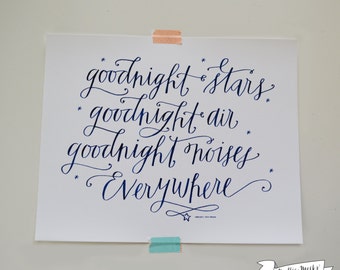 goodnight stars
goodnight air
goodnight noises
everywhere